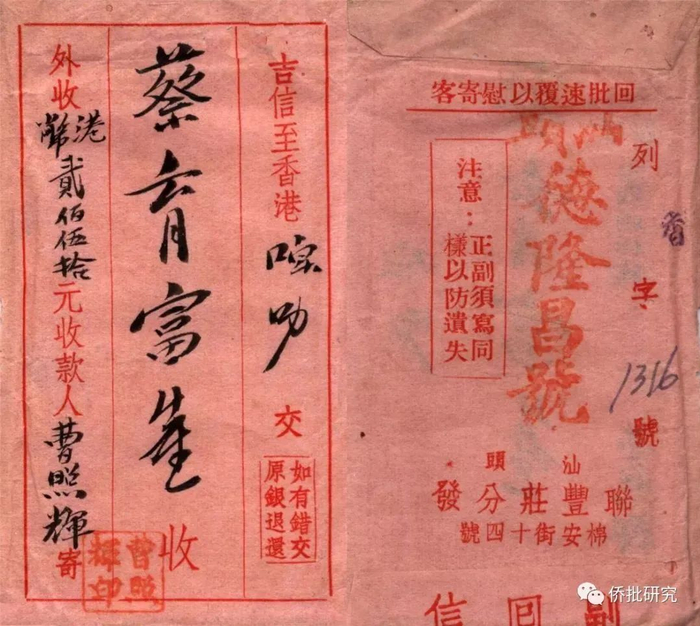 吉信至香港 叻 交
如有錯交
原銀退還
蔡育富 收
外收港幣貳佰伍拾元收款人曹照輝寄
曹照
輝印
回批速覆以慰寄客
列 香 字 1316 號
汕頭
德隆昌號
注意：正副須寫同
樣以防遺失
汕頭
聯豐莊分發
棉安街十四號
副回信
侨批研究